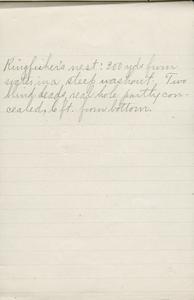 Kingfisher's nest: 300 yds from
in a steep washout. Two
blind leads, real hole partly con-
cealed, 6 ft. from bottom.